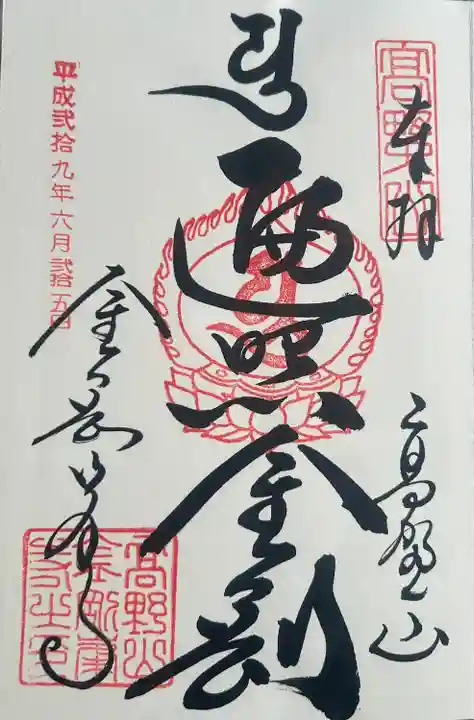 高野山
奉拝
高野山
遍照金剛
平成弐拾九年六月弐拾五日
金剛峯寺
高野山
金剛峯
寺之印